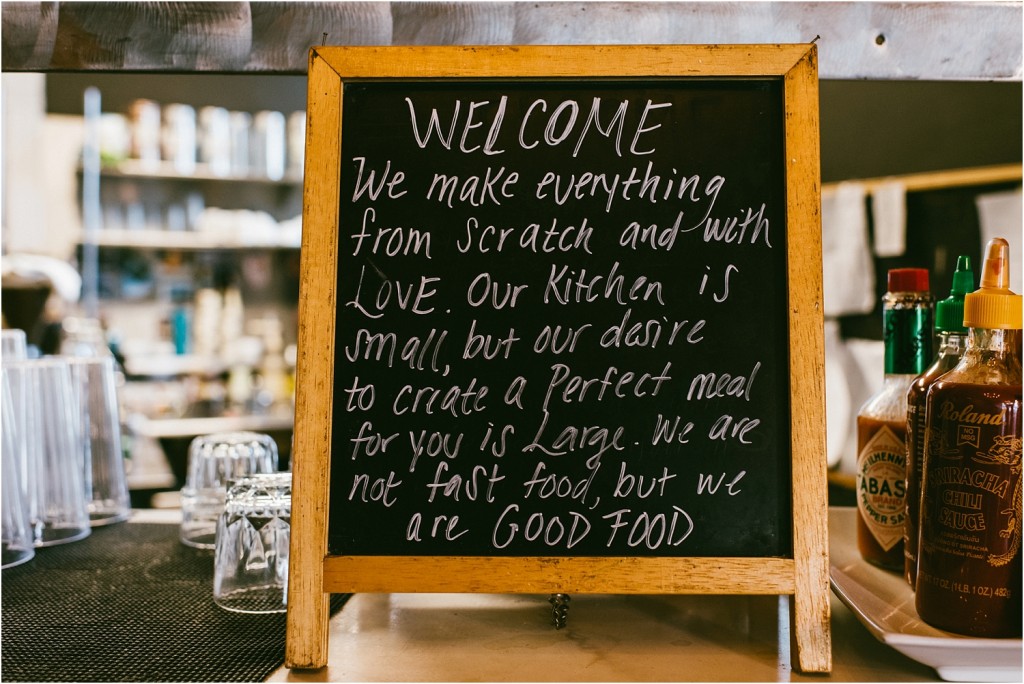 WELCOME
We make everything
from scratch and with
LOVE. Our Kitchen is
small, but our desire
to create a Perfect meal
for you is Large. We are
not fast food, but we
are GOOD FOOD
Roland
NO
MSG
SRIRACHA
CHILI
SAUCE
TABAS
PEPPER SA